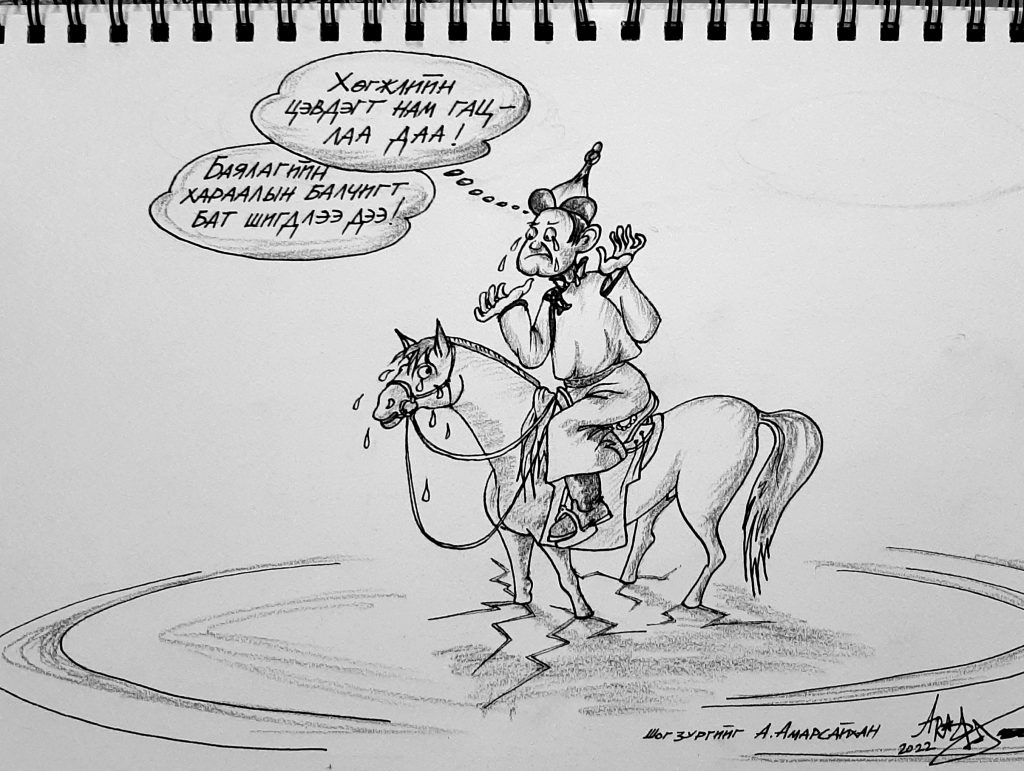 ХӨГЖЛИЙН
ЦЭВДЭГТ НАМ ГАЦ-
ЛАА ДАА!
БАЯЛАГИЙН
ХАРААЛЫН БАЛЧИГТ
БАТ ШИГДЛЭЭ ДЭЭ!
ШОГ ЗУРГИЙГ А. АМАРСАЙХАН
2022